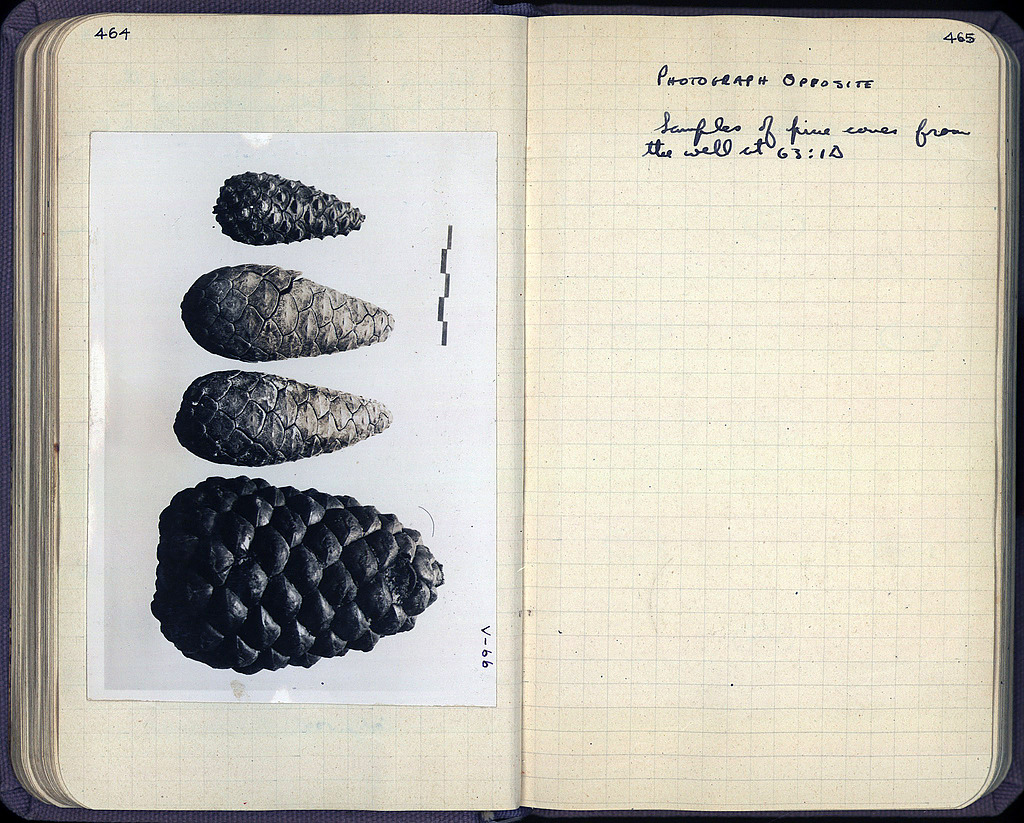 464
V-66
465
PHOTOGRAPH OPPOSITE
Samples of pine cones from
the well at 63:1Δ